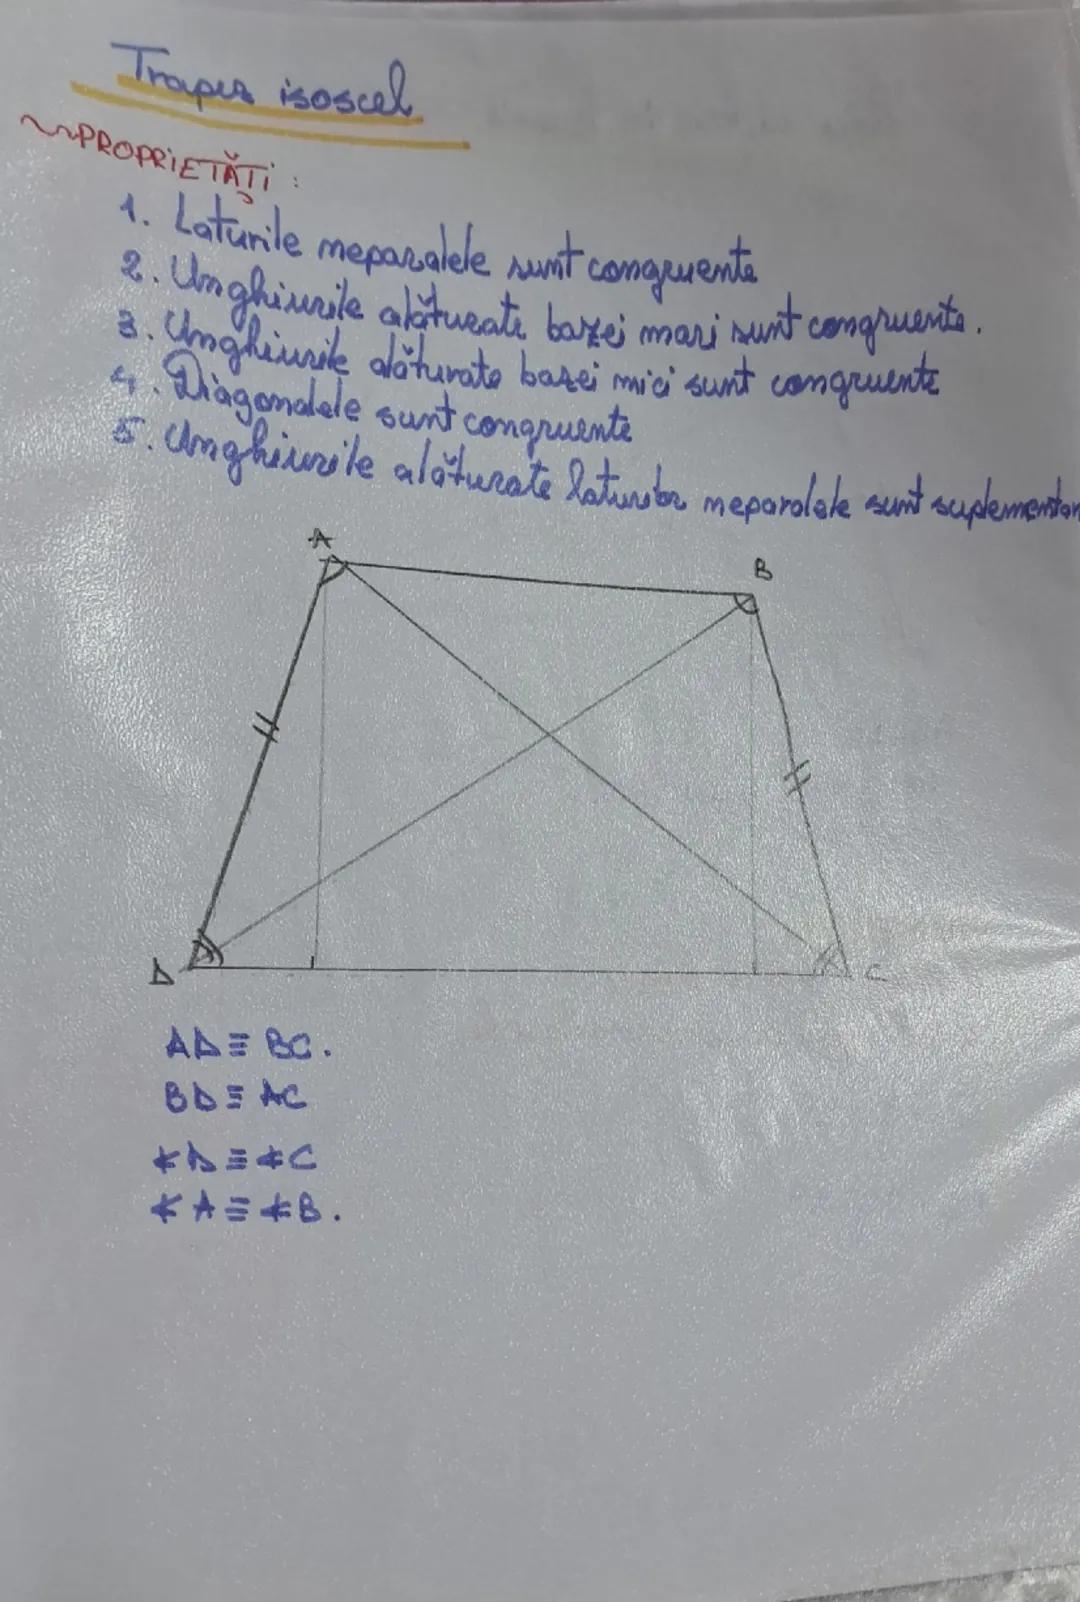 Trapez isoscel
PROPRIETĂȚI :
1. Laturile neparalele sunt congruente
2. Unghiurile alăturate bazei mari sunt congruente.
3. Unghiurile alăturate bazei mici sunt congruente
4. Diagonalele sunt congruente
5. Unghiurile alăturate laturilor neparalele sunt suplementar
A
B
D
C
AD ≡ BC.
BD ≡ AC
∢D ≡ ∢C
∢A ≡ ∢B.